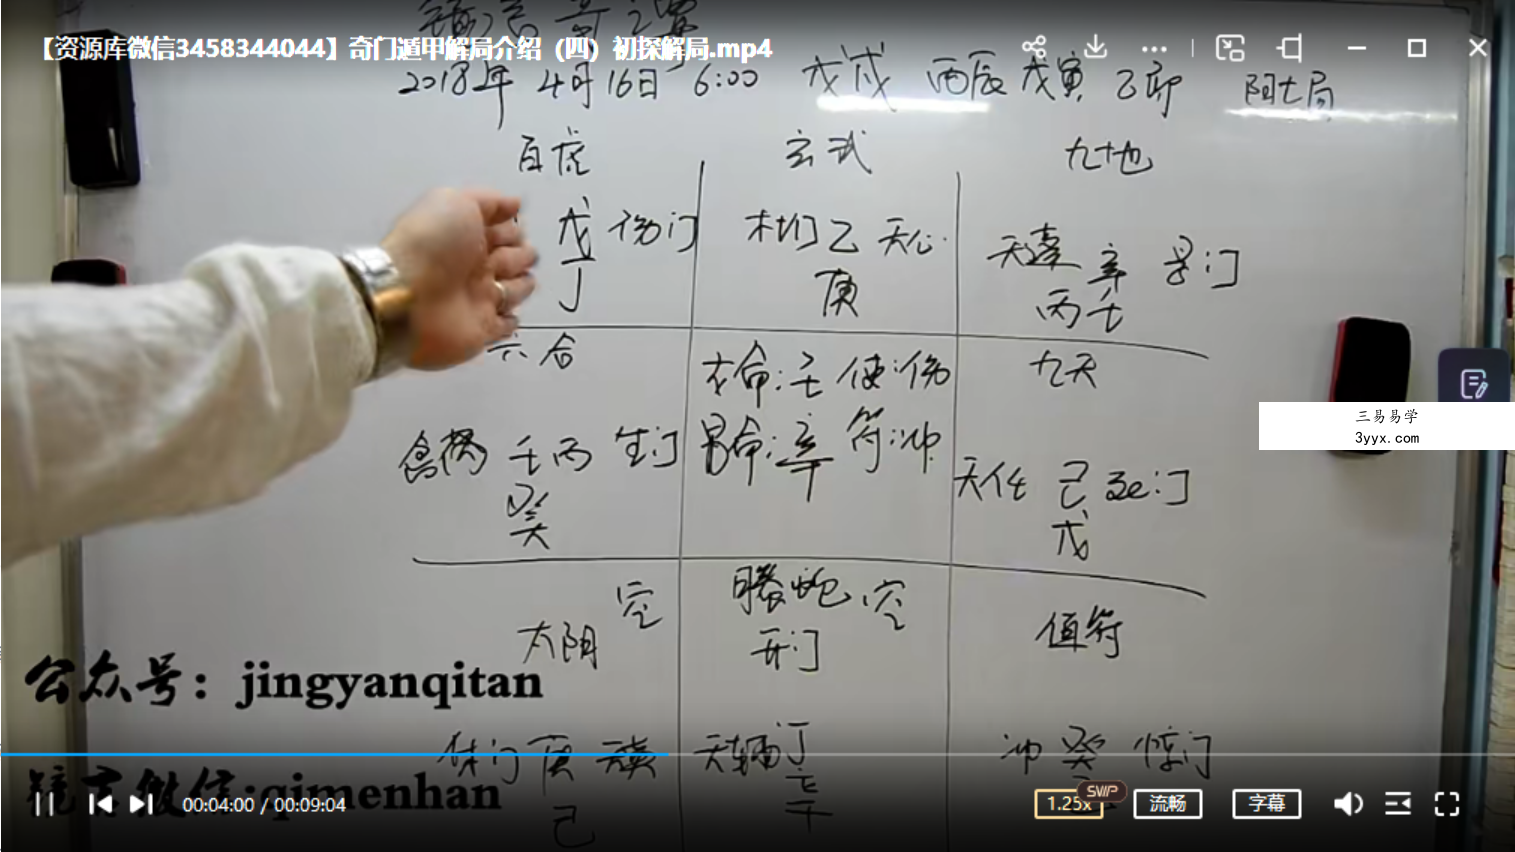 镜言奇之谭
【资源库微信3458344044】奇门遁甲解局介绍（四）初探解局.mp4
2018年 4月16日 6:00 戊戌 丙辰 戊寅 乙卯 阳七局
白虎 玄武 九地
戊 伤门 杜门 乙 天心 天蓬 辛 景门
丁 庚 丙 壬
六合 求命:壬 使:伤 九天
三易易学
3yyx.com
禽芮 壬丙 生门 男命:辛 符:冲 天任 己 死门
癸 戊
空 螣蛇 空
太阴 开门 值符
公众号：jingyanqitan
休门 庚 天英 天辅 丁 冲 癸 惊门
镜言微信:qimenhan
己 辛
00:04:00 / 00:09:04 1.25x SWP 流畅 字幕